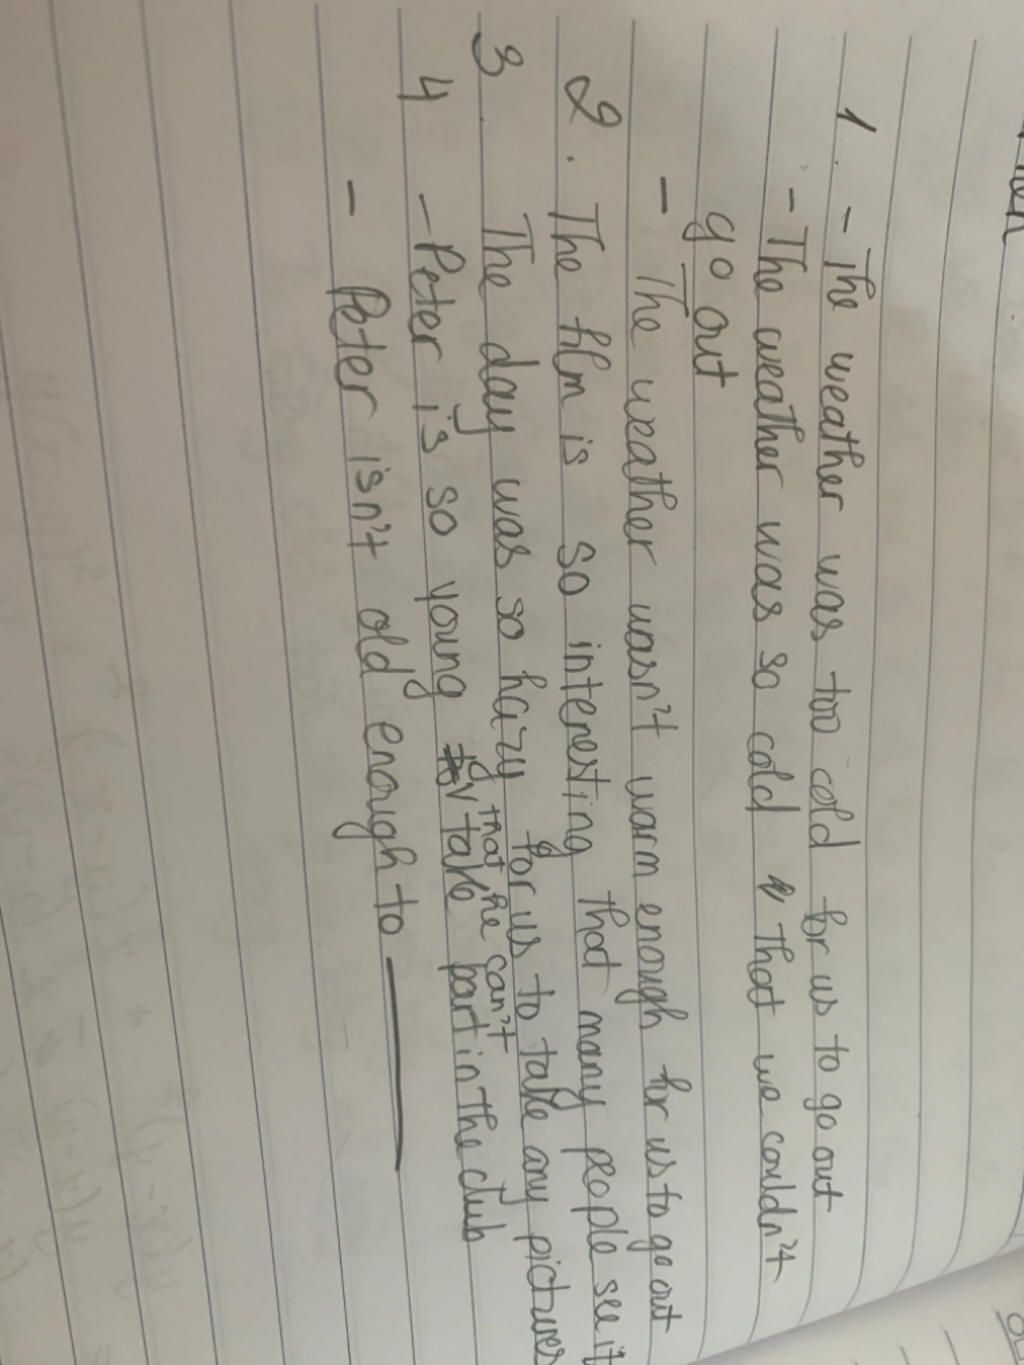 1. - The weather was too cold for us to go out
- The weather was so cold that we couldn't
go out
- The weather wasn't warm enough for us to go out
2. The film is so interesting that many people see it
3 The day was so hazy for us to take any pictures
that he can't
4 - Peter is so young take part in the club
- Peter isn't old enough to